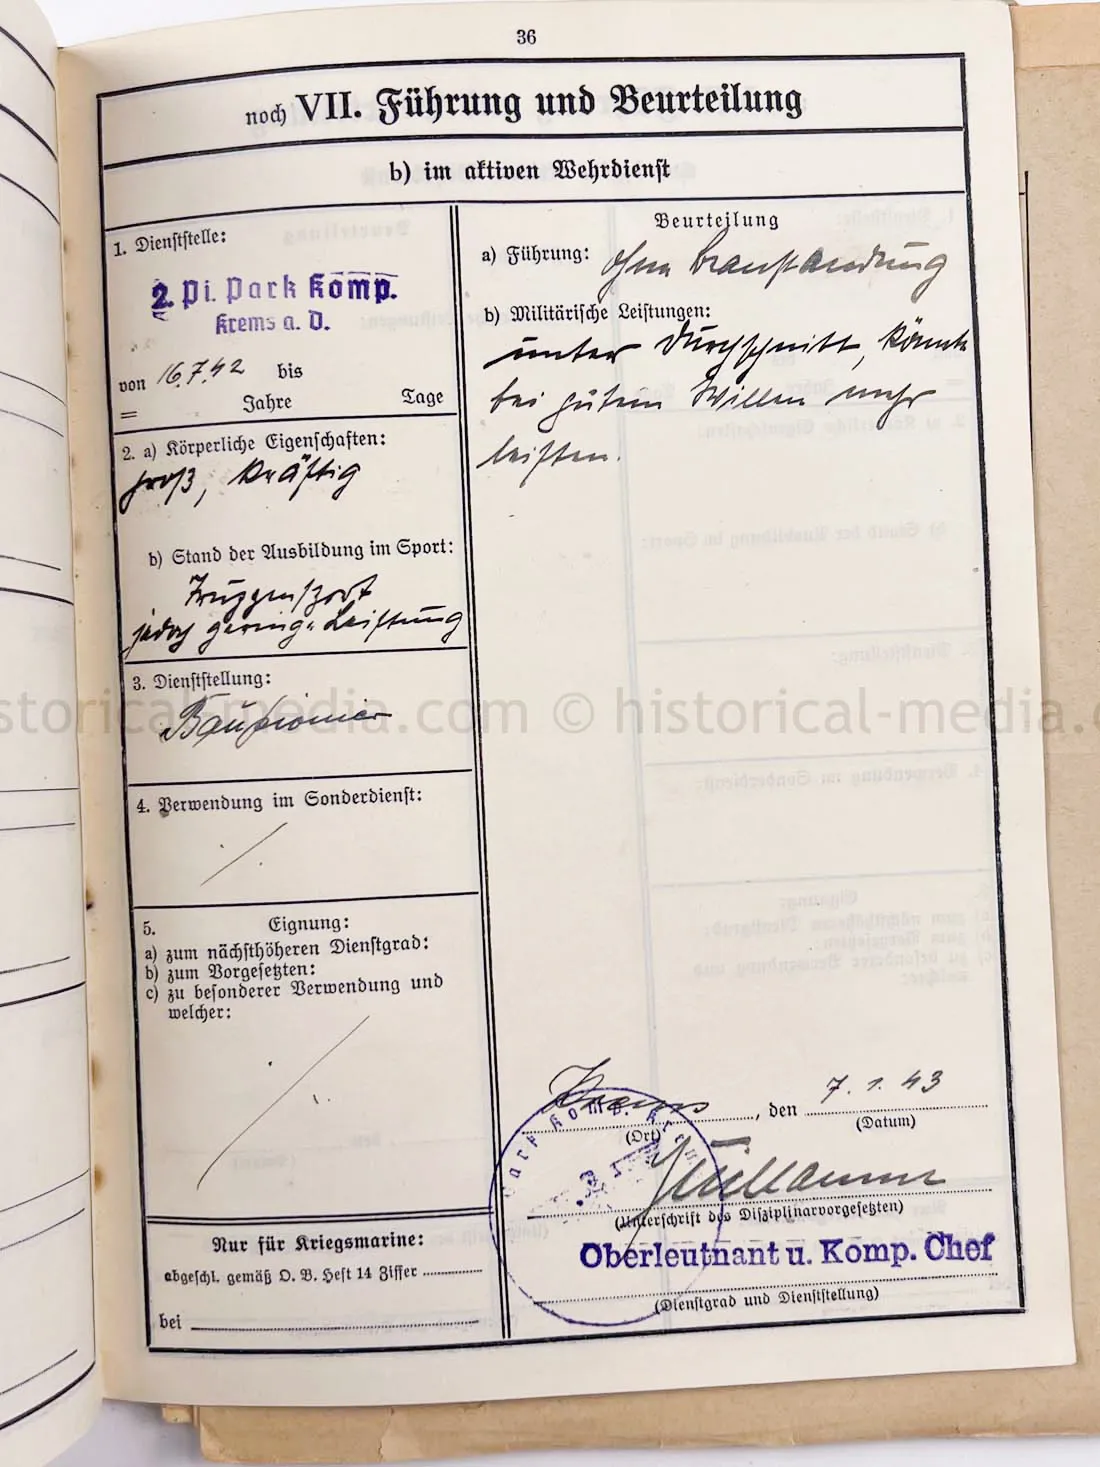 36
noch VII. Führung und Beurteilung
b) im aktiven Wehrdienst
1. Dienststelle:
2. Pi. Park Komp.
Krems a. D.
von 16.7.42 bis
= Jahre Tage
2. a) Körperliche Eigenschaften:
groß, kräftig
b) Stand der Ausbildung im Sport:
Truppensport
jedoch geringe Leistung
3. Dienststellung:
Baupionier
4. Verwendung im Sonderdienst:
5. Eignung:
a) zum nächsthöheren Dienstgrad:
b) zum Vorgesetzten:
c) zu besonderer Verwendung und
welcher:
Nur für Kriegsmarine:
abgeschl. gemäß D. B. Heft 14 Ziffer
bei
Beurteilung
a) Führung: ohne Beanstandung
b) Militärische Leistungen:
unter Durchschnitt, könnte
bei gutem Willen mehr
leisten.
Krems, den 7.1.43
(Ort) (Datum)
Park Komp. Krems
(Unterschrift des Disziplinarvorgesetzten)
Oberleutnant u. Komp. Chef
(Dienstgrad und Dienststellung)
storical-media.com © historical-media.c